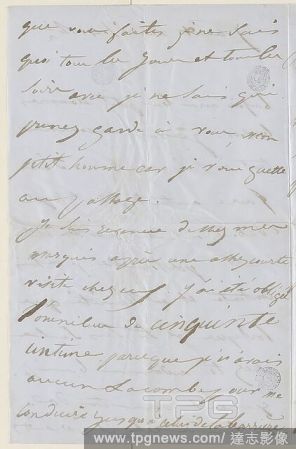 que vous faites je ne sais
quoi tous les jours et tous les
soirs avec je ne sais qui
prenez garde à vous, mon
petit homme car je vous guette
au passage.
Je suis revenue de chez mes
marquis après une assez courte
visite chez eux j'ai été obligé
l'omnibus de cinquante
centime parce que je n'avais
aucun Lacombe pour me
conduire jusqu'à celui de la barrière
TPG
www.tpgnews.com/達志影像